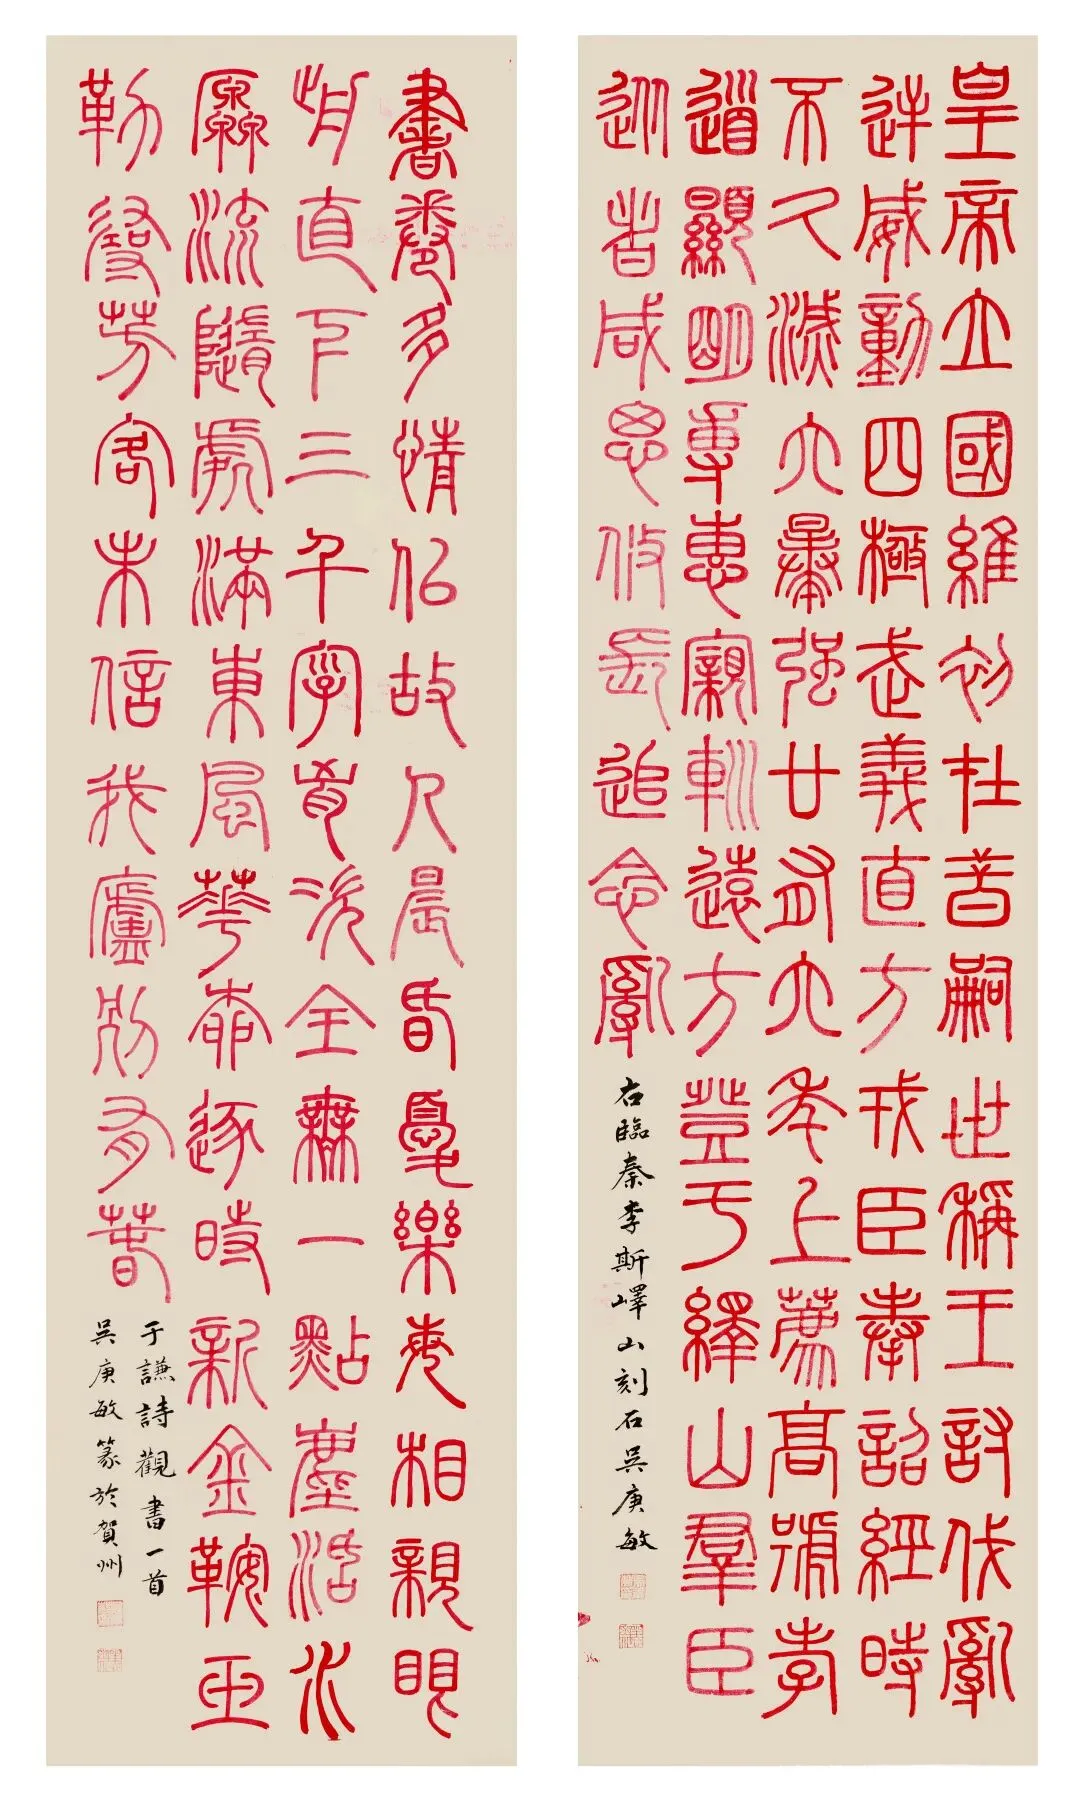 皇帝立國維初在昔嗣世稱王討伐亂
逆威動四極武義直方戎臣奉詔經時
不久滅六暴強廿有六年上薦高號孝
道顯明專惠親巡遠方登于繹山羣臣
從者咸思攸長追念亂
右臨秦李斯嶧山刻石吳庚敏
書卷多情似故人晨昏憂樂每相親眼
前直下三千字胸次全無一點塵活水
源流隨處滿東風華柳逐時新金鞍玉
勒尋芳客未信我廬別有春
于謙詩觀書一首
吳庚敏篆於賀州